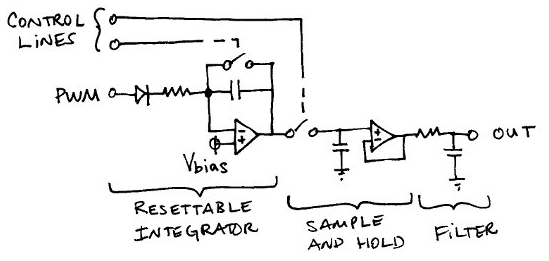 CONTROL
LINES
PWM
Vbias
OUT
RESETTABLE
INTEGRATOR
SAMPLE
AND HOLD
FILTER